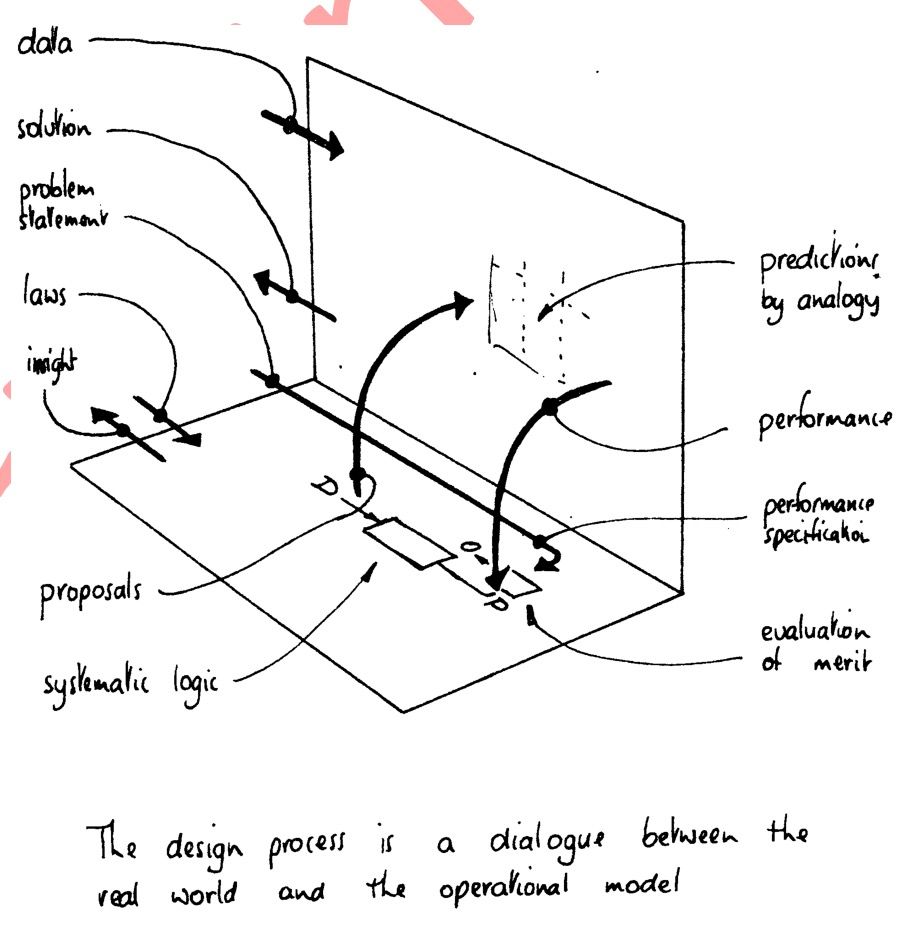 data
solution
problem
statement
laws
insight
proposals
systematic logic
D
O
P
predictions
by analogy
performance
performance
specification
evaluation
of merit
The design process is a dialogue between the
real world and the operational model